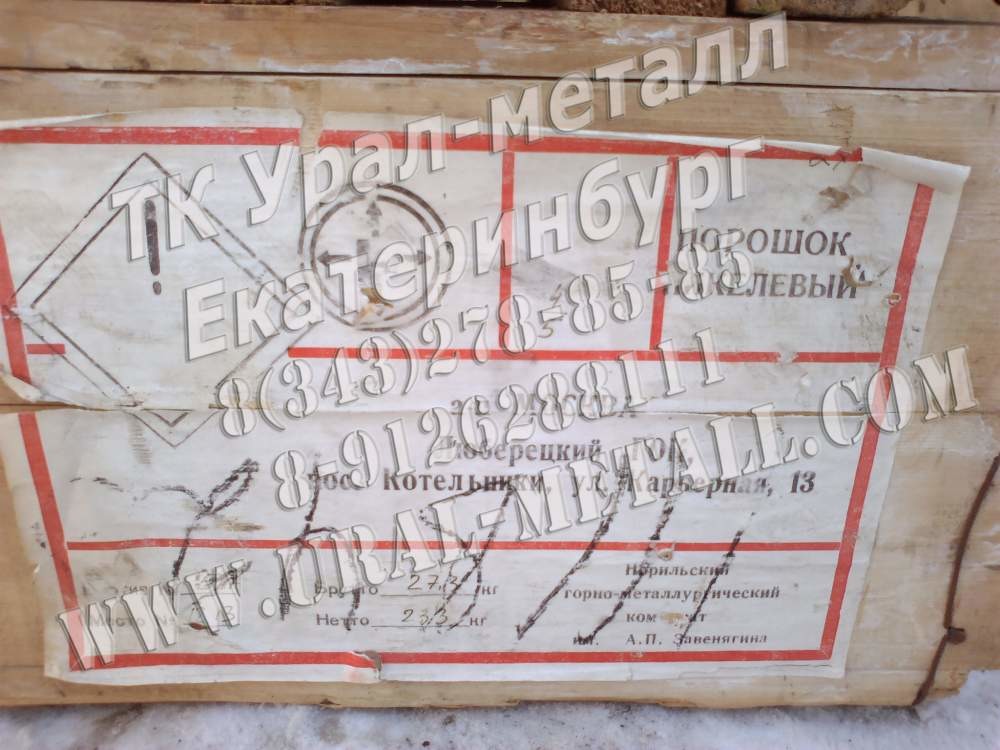 ТК Урал-металл
Екатеринбург
8(343)278-85-85
8-9126288111
WWW.URAL-METALL.COM
!
ПОРОШОК
НИКЕЛЕВЫЙ
5
МОСКВА
Люберецкий ГОК,
пос. Котельники, ул. Карьерная, 13
Брутто 27,3 кг
Место № Нетто 23,3 кг
Норильский
горно-металлургический
комбинат
им. А.П. Завенягина